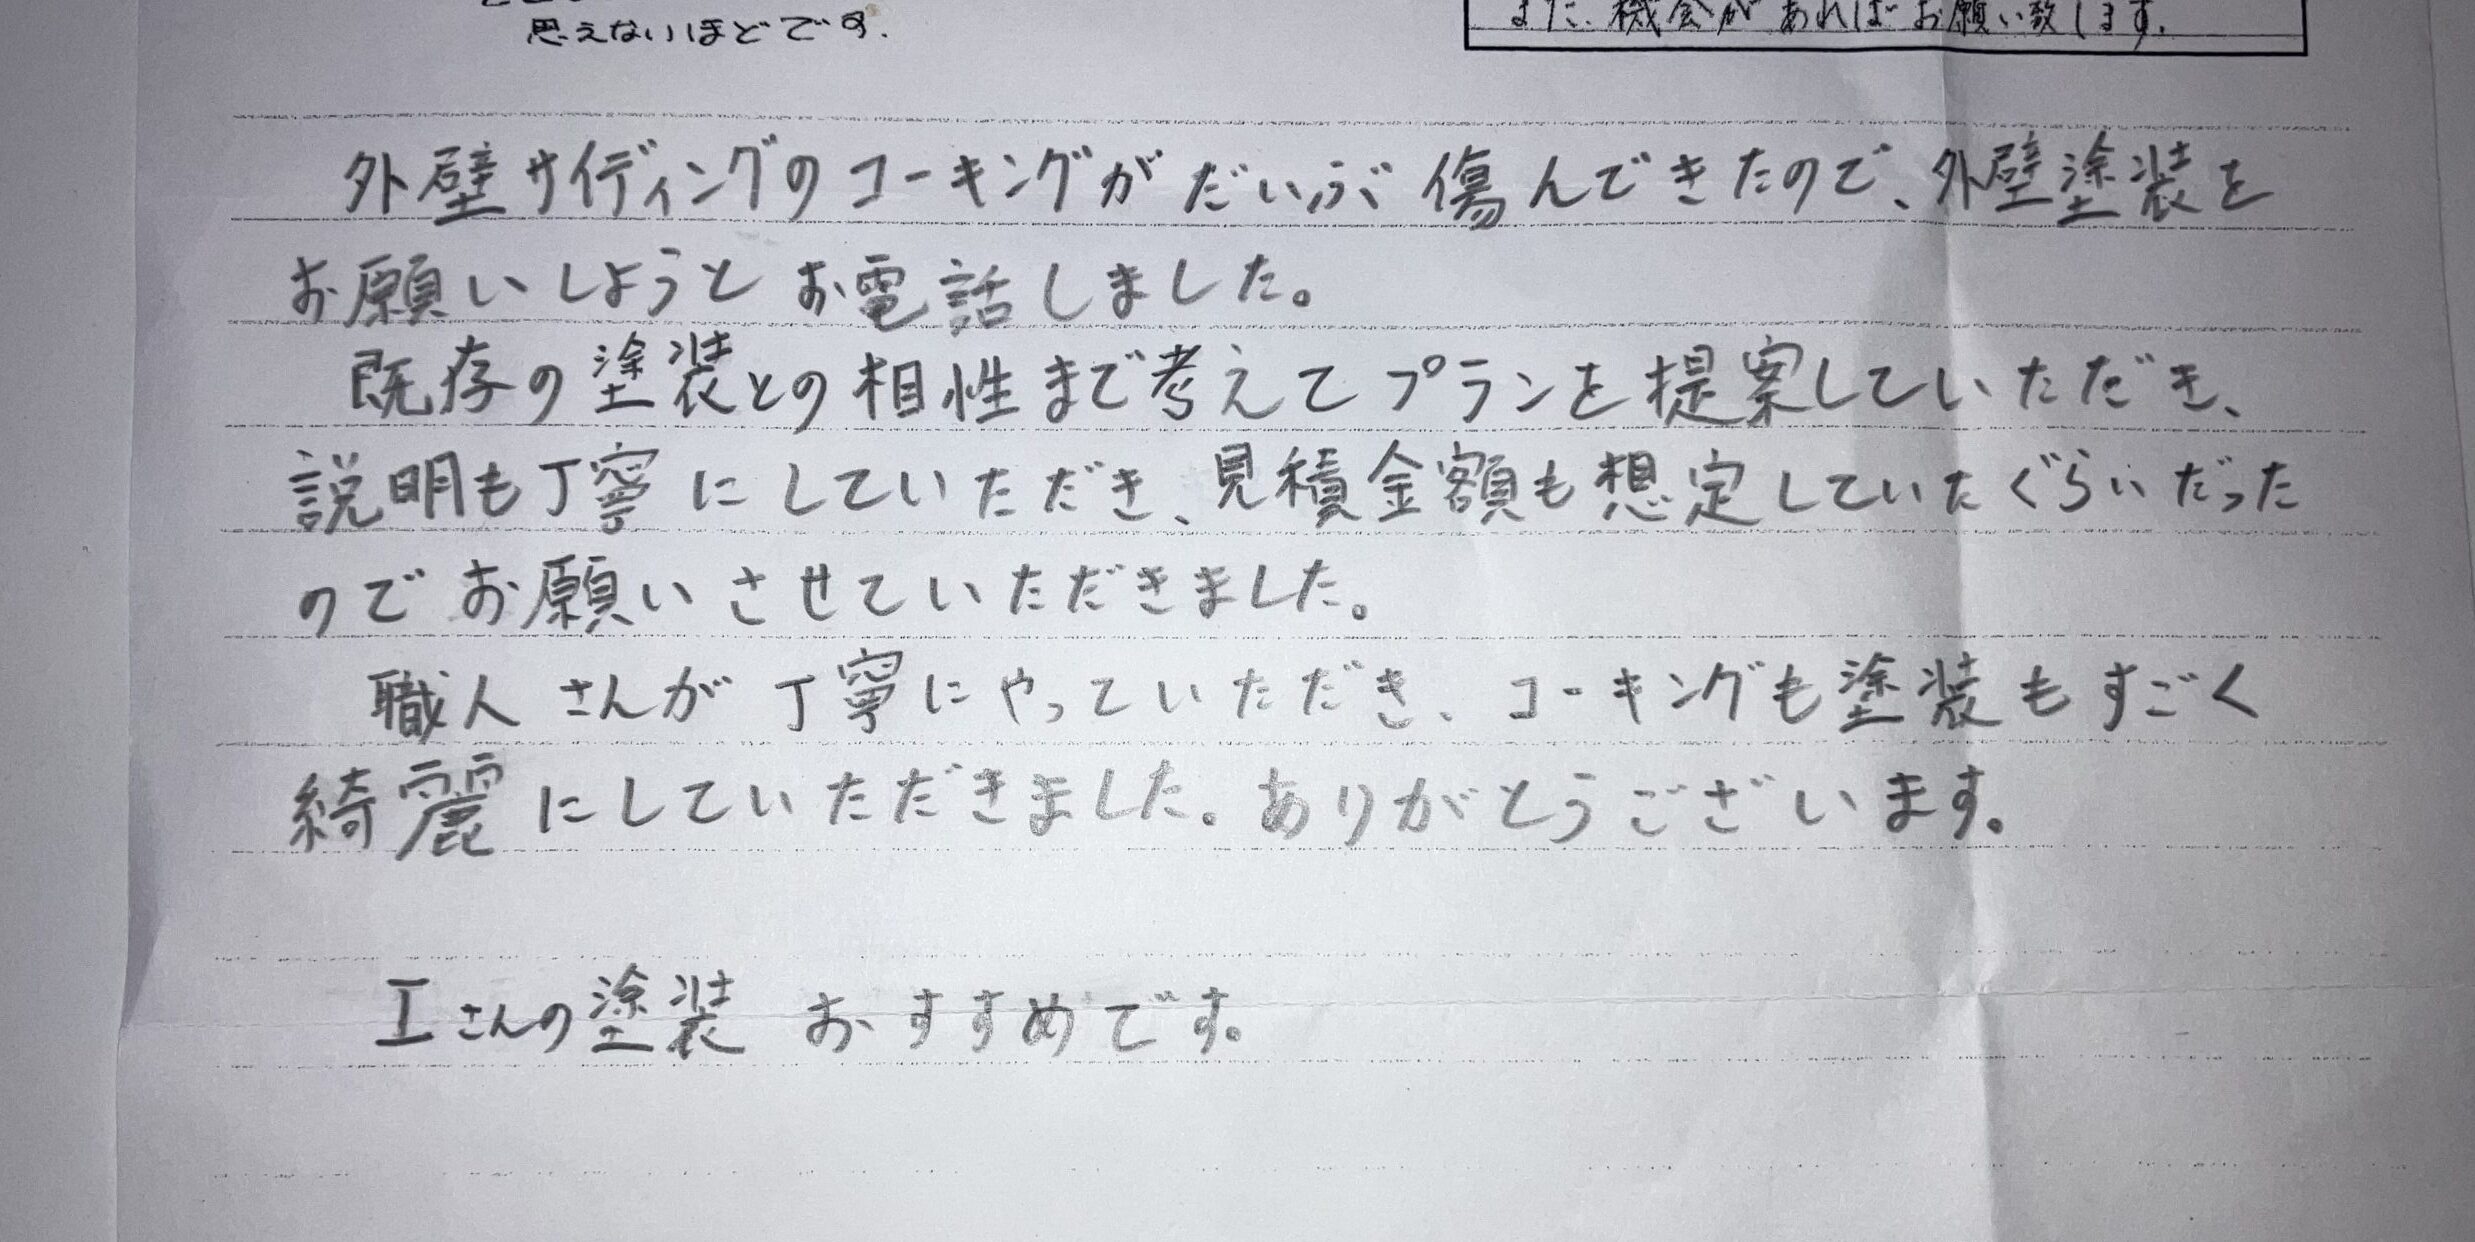 思えないほどです.
また、機会があればお願い致します.
外壁サイディングのコーキングがだいぶ傷んできたので、外壁塗装を
お願いしようとお電話しました。
既存の塗装との相性まで考えてプランを提案していただき、
説明も丁寧にしていただき、見積金額も想定していたぐらいだった
のでお願いさせていただきました。
職人さんが丁寧にやっていただき、コーキングも塗装もすごく
綺麗にしていただきました。ありがとうございます。
エさんの塗装 おすすめです。